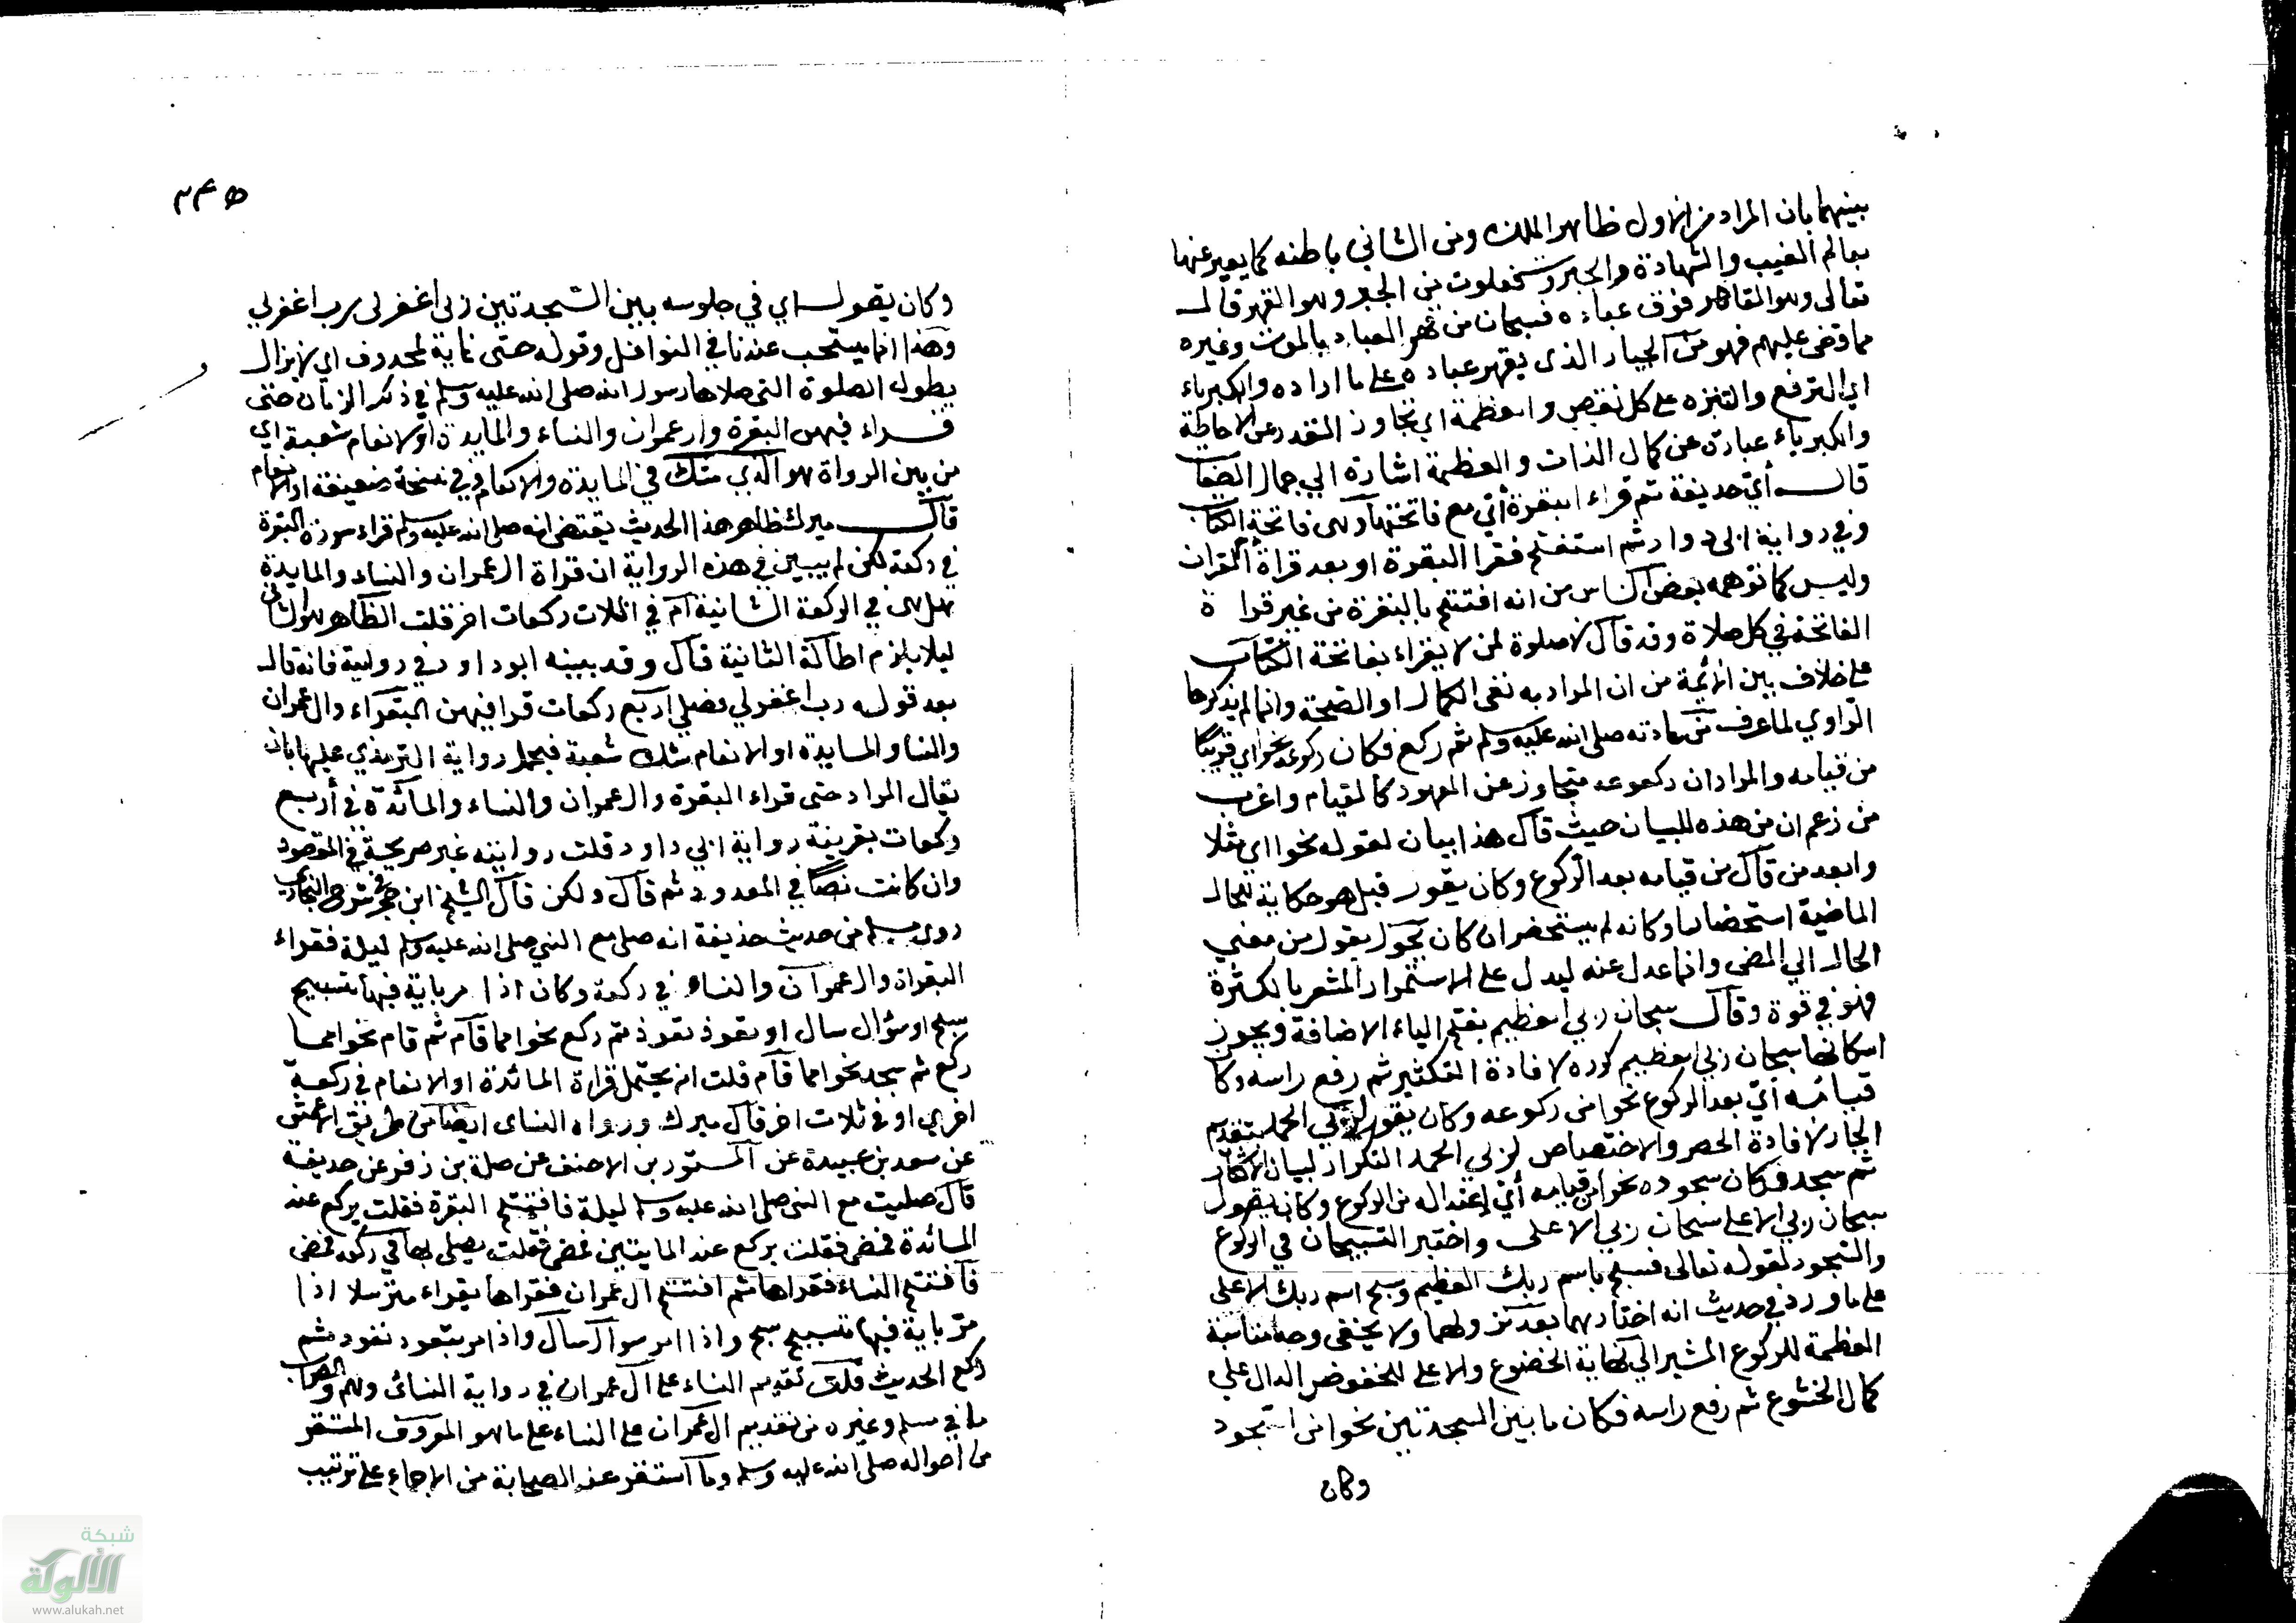 بينهما بان المراد من الاول ظاهر الملك ومن الثاني باطنه كما يعبر عنهما
بعالم الغيب والشهادة والجبروت فعلوت من الجبر وهو القهر قال
تعالى وهو القاهر فوق عباده فسبحان من قهر العباد بالموت وغيره
مما قضى عليهم فهو من الجبار الذي يقهر عباده على ما اراده والكبرياء
اي الترفع والتنزه على كل نقص والعظمة اي تجاوز القدر عن الاحاطة
والكبرياء عبارة عن كمال الذات والعظمة اشارة الي جمال الصفات
قال أي حذيفة ثم قراء البقرة أي مع فاتحتها وهى فاتحة الكتاب
وفي رواية ابي داود ثم استفتح فقرا البقرة او بعد قراة ام القران
وليس كما توهمه بعض الناس من انه افتتح بالبقرة من غير قراة
الفاتحة في كل صلاة وقد قال لا صلوة لمن لا يقراء بفاتحة الكتاب
على خلاف بين الائمة من ان المراد به نفى الكمال او الصحة وانما لم يذكرها
الراوي لما عرف من عادته صلى الله عليه وسلم ثم ركع فكان ركوعه نحوا اي قريبا
من قيامه والمراد ان ركوعه متجاوز عن المعهود كالقيام واغرب
من زعم ان من هذه للبيان حيث قال هذا بيان لقوله نحوا اي مثلا
وابعد من قال من قيامه بعد الركوع وكان يقول قيل هو حكاية للحال
الماضية استحضارا وكانه لم يستحضر ان كان يحول يقول من معني
الحال الي المضى وانما عدل عنه ليدل على الاستمرار المشعر بالكثرة
فهو في قوة وقال سبحان ربي العظيم بفتح الياء الاضافة ويجوز
اسكانها سبحان ربي العظيم كرره لافادة التكثير ثم رفع راسه وكان
قيامه أي بعد الركوع نحوا من ركوعه وكان يقول لربي الحمد بتقديم
الجار لافادة الحصر والاختصاص لربي الحمد التكرار لبيان الاكثار
ثم سجد فكان سجوده نحوا من قيامه أي اعتداله من الركوع وكان يقول
سبحان ربي الاعلى سبحان ربي الاعلى واختير التسبيحان في الركوع
والسجود لقوله تعالى فسبح باسم ربك العظيم وسبح اسم ربك الاعلى
على ما ورد في حديث انه اختارهما بعد نزولهما ولا يخفى وجه مناسبة
العظمة للركوع المشير الي نهاية الخضوع والاعلى للخفوض الدال علي
كمال الخشوع ثم رفع راسه فكان ما بين السجدتين نحوا من السجود
وكان
وكان يقول اي في جلوسه بين السجدتين رب اغفر لى رب اغفر لي
وهذا انما يستحب عندنا في النوافل وقوله حتى غاية لمحذوف اي لا يزال
يطول الصلوة التي صلاها رسول الله صلى الله عليه وسلم في ذلك الزمان حتى
قراء فيهن البقرة وال عمران والنساء والمايدة او الانعام شعبة اي
من بين الرواة هو الذي شك في المايدة والانعام وفي نسخة ضعيفة او الانعام
قال ميرك ظاهر هذا الحديث يقتضى انه صلى الله عليه وسلم قراء سورة البقرة
في ركعة لكن لم يبين في هذه الرواية ان قراة ال عمران والنساء والمايدة
هل هى في الركعة الثانية ام في الثلاث ركعات اخر قلت الظاهر هو الثاني
ليلا يلزم اطالة الثانية قال وقد بينه ابو داود في رواية فانه قال
بعد قوله رب اغفر لي فصلي اربع ركعات قرا فيهن البقراء وال عمران
والنسا والمايدة او الانعام شك شعبة فيحمل رواية الترمذي عليها بان
يقال المراد حتى قراء البقرة وال عمران والنساء والمائدة في أربع
ركعات بقرينة رواية ابي داود قلت روايته غير صريحة في المقصود
وان كانت نصا في المعدود ثم قال ولكن قال الشيخ ابن حجر في شرح البخاري
روى مسلم من حديث حذيفة انه صلى مع النبي صلى الله عليه وسلم ليلة فقراء
البقراة وال عمران والنساء في ركعة وكان اذا مر باية فيها تسبيح
سبح او سؤال سال او تعوذ تعوذ ثم ركع نحوا مما قام ثم قام نحوا مما
ركع ثم سجد نحوا مما قام قلت انه يحتمل قراءة المائدة او الانعام في ركعة
اخري او في ثلاث اخر قال ميرك ورواه النساى ايضا من طريق الاعمش
عن سعد بن عبيدة عن المستورد بن الاحنف عن صلة بن زفر عن حذيفة
قال صليت مع النبي صلى الله عليه وسلم ليلة فافتتح البقرة فقلت يركع عند
المائدة فمضى فقلت يركع عند المايتين فمضى فقلت يصلي بها في ركعة فمضى
فافتتح النساء فقراها ثم افتتح ال عمران فقراها يقراء مترسلا اذا
مر باية فيها تسبيح سبح واذا مر سوال سال واذا مر بتعوذ تعوذ ثم
ركع الحديث قلت تقديم النساء على ال عمران في رواية النسائى وهم والصواب
ما في مسلم وغيره من تقديم ال عمران على النساء على ما هو المعروف المستقر
من احواله صلى الله عليه وسلم وما استقر عند الصحابة من الاجماع على ترتيب
شبكة
الألوكة
www.alukah.net